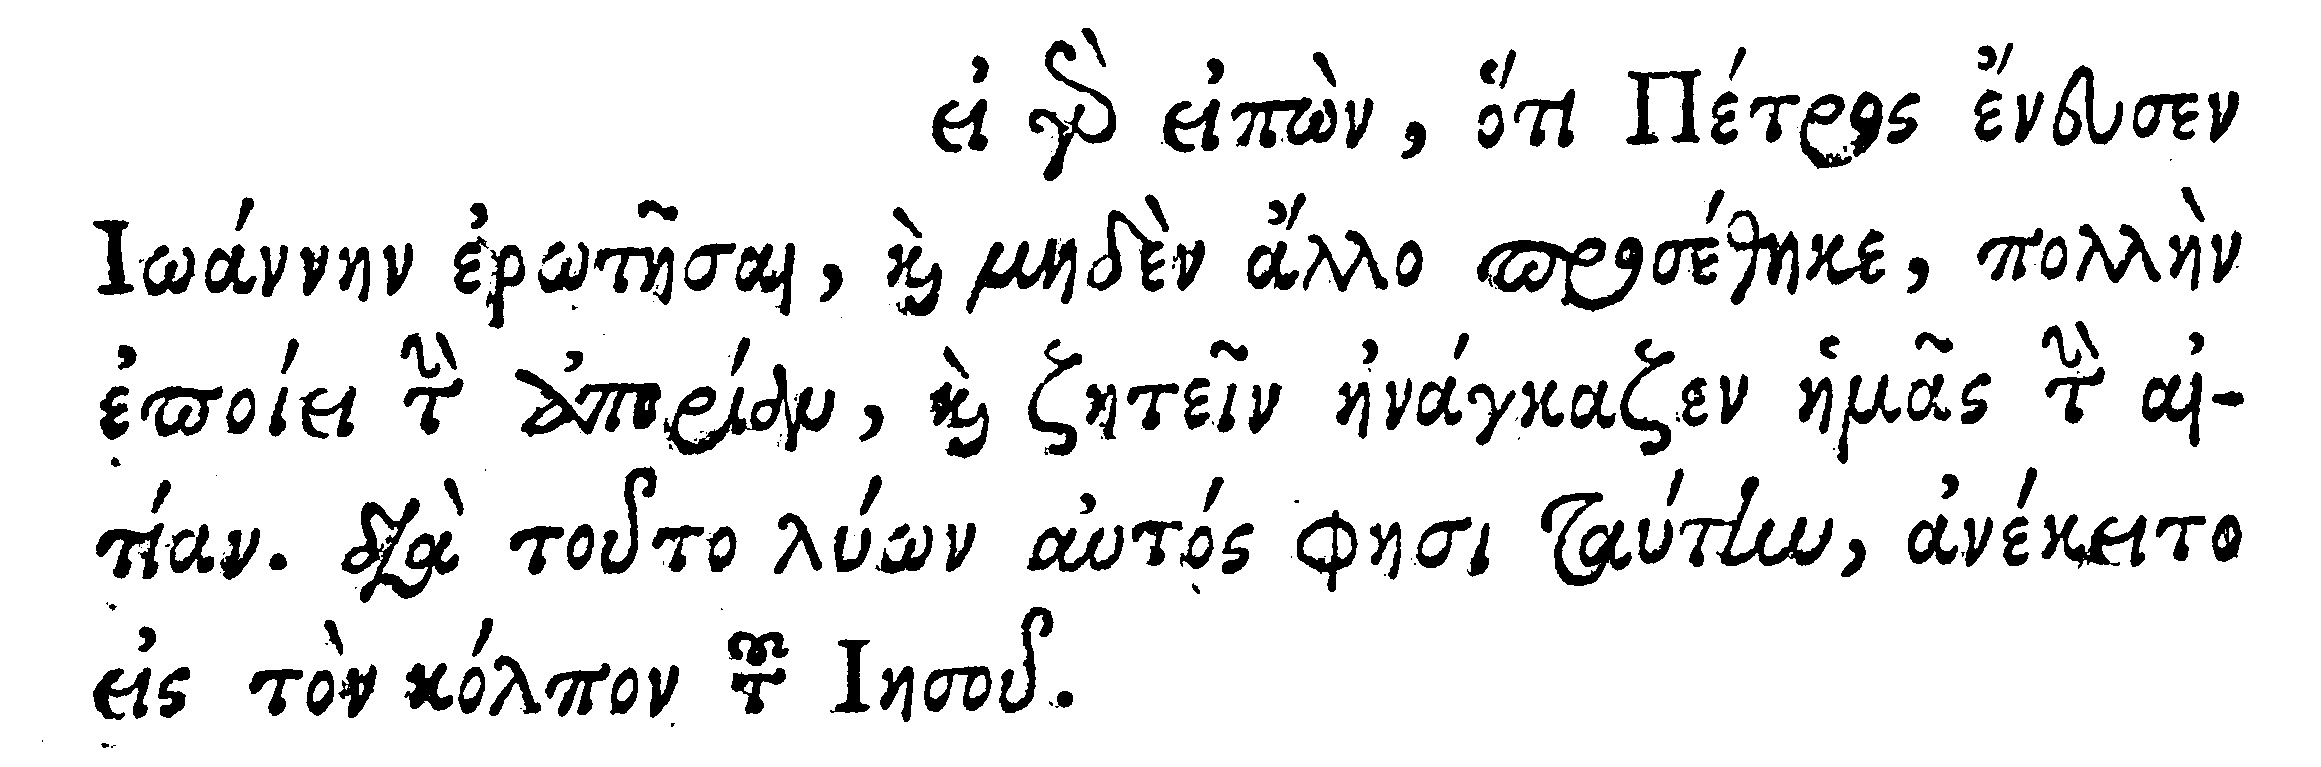 εἰ γὰρ εἰπὼν, ὅτι Πέτρος ἔνευσεν
Ἰωάννην ἐρωτῆσαι, καὶ μηδὲν ἄλλο προσέθηκε, πολλὴν
ἐποίει τὴν ἀπορίαν, καὶ ζητεῖν ἠνάγκαζεν ἡμᾶς τὴν αἰ-
τίαν. διὰ τοῦτο λύων αὐτός φησι ταύτην, ἀνέκειτο
εἰς τὸν κόλπον τοῦ Ἰησοῦ.